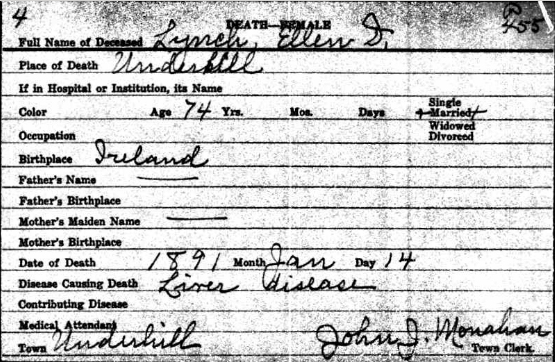 4 DEATH—FEMALE P 455
Full Name of Deceased Lynch, Ellen D.
Place of Death Underhill
If in Hospital or Institution, its Name
Color Age 74 Yrs. Mos. Days Single
Married
Widowed
Divorced
Occupation
Birthplace Ireland
Father's Name
Father's Birthplace
Mother's Maiden Name
Mother's Birthplace
Date of Death 1891 Month Jan Day 14
Disease Causing Death Liver disease
Contributing Disease
Medical Attendant
Town Underhill John J. Monahan Town Clerk.